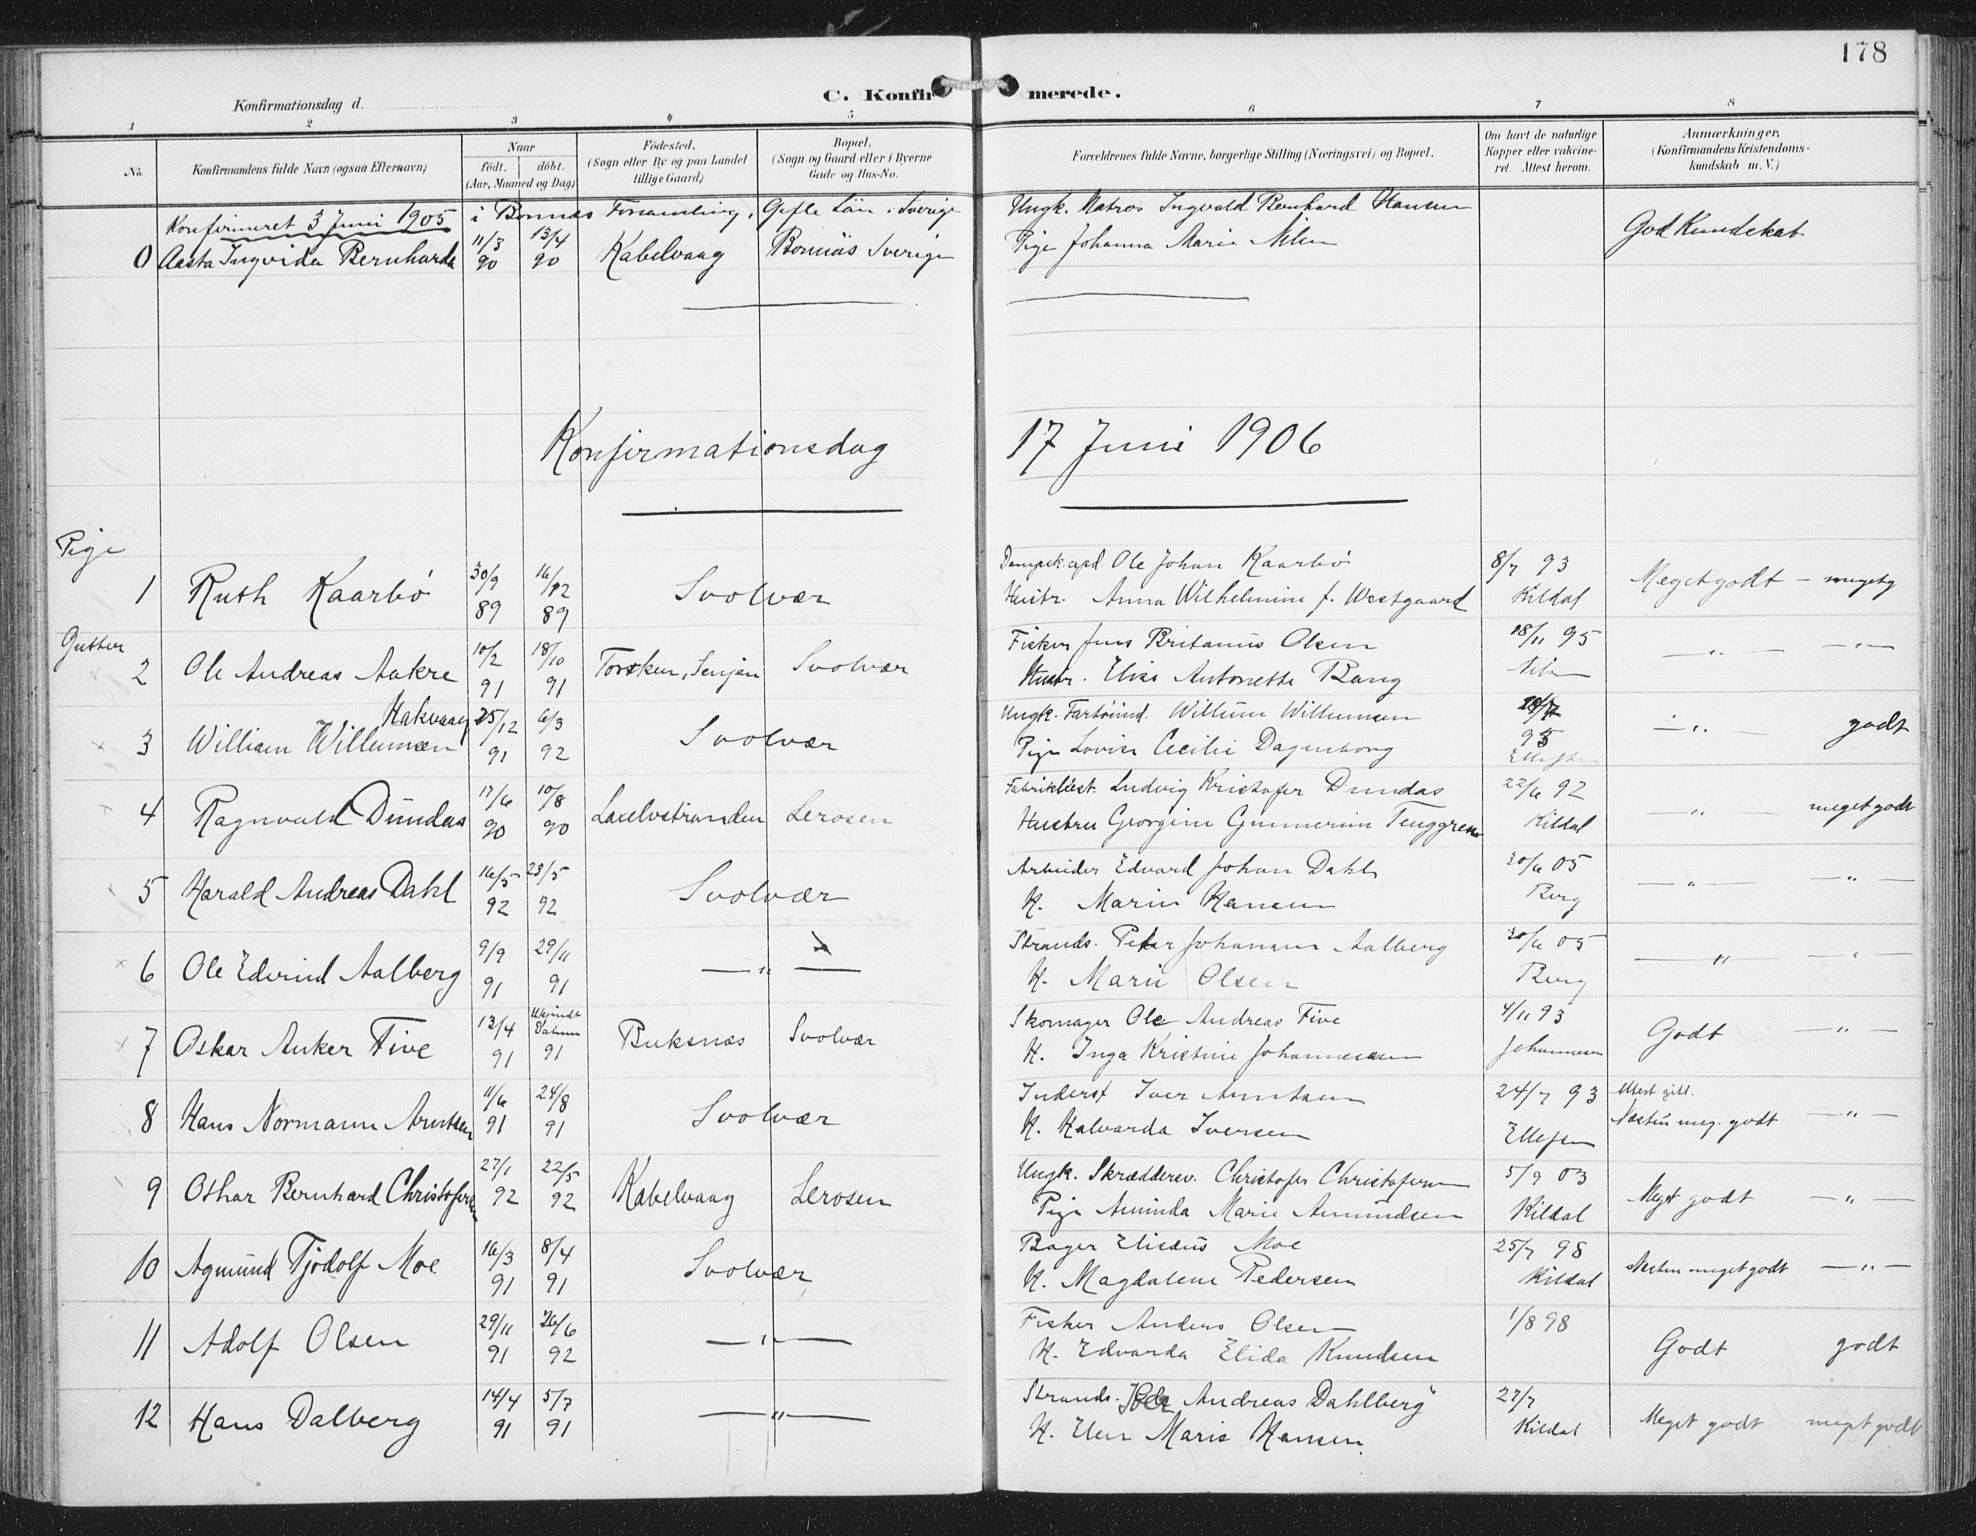 178
C. Konfirmerede.
Konfirmationsdag d.
1 2 3 4 5 6 7 8
No. Konfirmandens fulde Navn (ogsaa Efternavn) Naar født. døbt. (Aar, Maaned og Dag) Fødested. (Sogn eller By og paa Landet tillige Gaard) Bopæl. (Sogn og Gaard eller i Byerne Gade og Hus-No. Forældrenes fulde Navne, borgerlige Stilling (Næringsvei) og Bopæl. Om havt de naturlige Kopper eller vakcineret Attest herom. Anmærkninger. (Konfirmandens Kristendomskundskab m. V.)
Konfirmeret 3 Juni 1905 i Bomnäs Forsamling, Gefle Län i Sverige Ungk. Matros Ingvald Bernhard Hansen
0 Aasta Ingvida Bernharda 11/3 90 13/4 90 Kabelvaag Bomnäs Sverige Pige Johanna Marie Nilsen God Kundskab
Konfirmationsdag 17 Juni 1906
Pige
Dampsk.exped Ole Johan Kaarbø 8/7 93
1 Ruth Kaarbø 30/9 89 16/12 89 Svolvær Hustr. Anna Wilhelmine f. Westgaard Kildal Meget godt – meget g
Gutter
Fisker Jens Britanus Olsen 18/11 95
2 Ole Andreas Aakre 10/2 91 18/10 91 Torsken, Senjen Svolvær Hustr. Elise Antonette Bang — „ — — „ —
Hakvaag Ungk. Fartøind. Willum Willumsen
3 William Willumsen 25/12 91 6/3 92 Svolvær Pige Lovise Cecilie Dagenborg 95 — „ — godt
Fabrikbest. Ludvig Kristofer Dundas 22/6 92
4 Ragnvald Dundas 17/6 90 10/8 90 Laxelvstranden Lerosen Hustru Georgine Gunnerine Tenggren Kildal — „ — meget godt
Arbeider Edvard Johan Dahl 30/6 05
5 Harald Andreas Dahl 16/5 92 23/5 92 Svolvær H. Marie Hansen Berg — „ — — „ —
Strands. Peter Johansen Aalberg 30/6 05
6 Ole Edvind Aalberg 9/9 91 29/11 91 — „ — H. Marie Olsen Berg — „ — — „ —
Skomager Ole Andreas Five 4/11 93
7 Oskar Anker Five 13/4 91 Ukjendt Datum 91 Buksnæs Svolvær H. Inga Kristine Johannessen Johannesen Godt — „ —
Inderst Iver Arntsen 24/7 93 Attest gitt.
8 Hans Normann Arntsen 11/6 91 24/8 91 Svolvær H. Halvarda Iversen Ellefsen Næsten meg. godt — „ —
Ungk. Skræddersv. Christofer Christofersen 5/9 03
9 Othar Bernhard Christofersen 27/1 92 22/5 92 Kabelvaag Lerosen Pige Aminda Marie Amundsen Kildal Meget godt — „ —
Bager Eliseus Moe 25/7 98
10 Agmund Tjodolf Moe 16/3 91 8/4 91 Svolvær H. Magdalene Pedersen Kildal Næsten meget godt — „ —
Fisker Anders Olsen 1/8 98
11 Adolf Olsen 29/11 91 26/6 92 — „ — H. Edvarda Elida Knudsen Godt godt
Strands. Peder Andreas Dahlberg 27/7
12 Hans Dalberg 14/4 91 5/7 91 — „ — H. Elen Marie Hansen. Kildal Meget godt meget godt